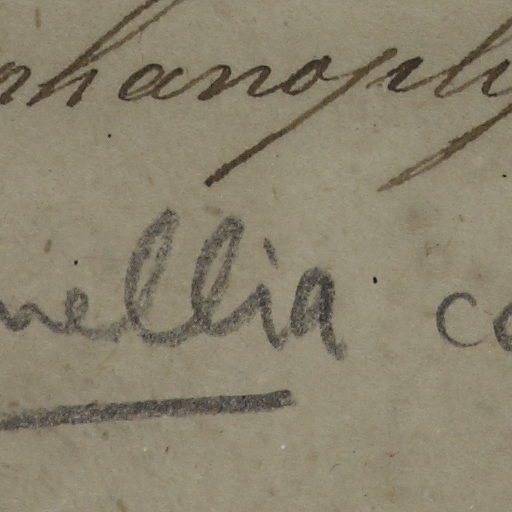 phanoply
mellia co